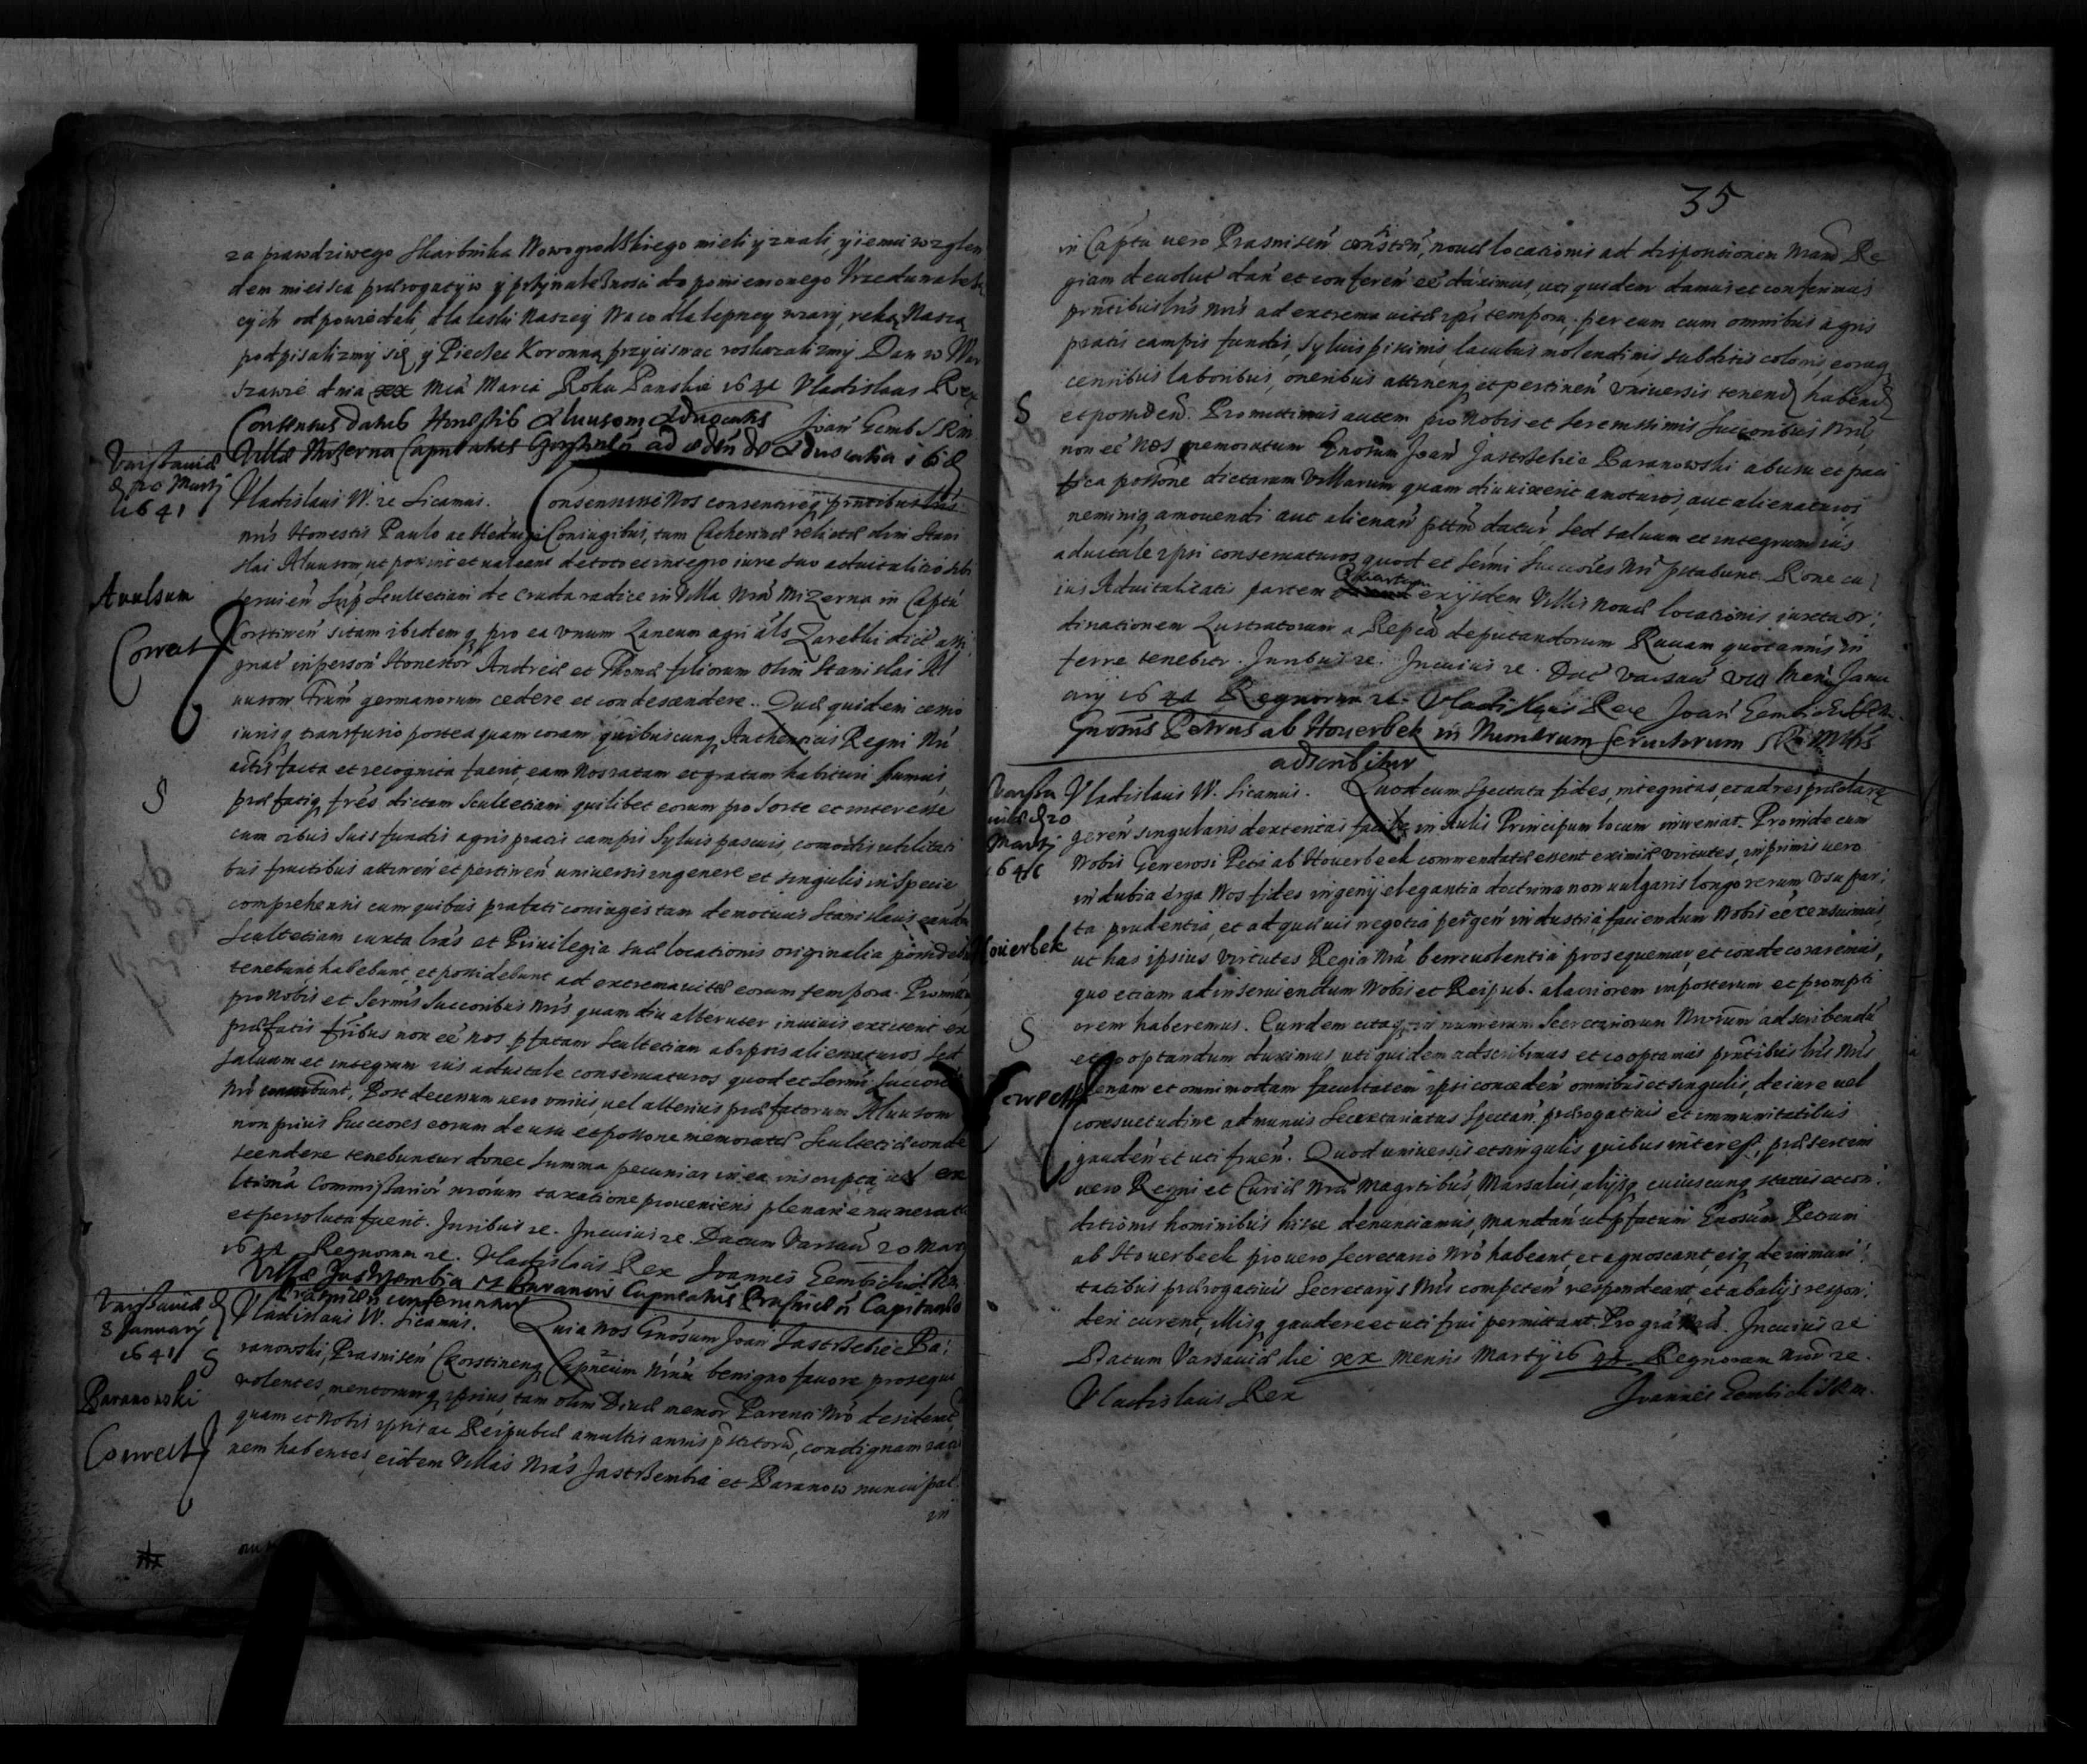 za prawdziwego Skarbnika Nowogrodskiego mieli y znali, y iemu wzglen
dem mieisca prærogatyw y przynależnosci do pomienionego Vrzedu należą
cych odpowiedali, dla łaski Naszey Na co dla lepszey wiary, ręką Naszą
podpisalizmy się y Pieczec Koronną przycisnac roskazalizmy Dan w War
szawie dnia xx Mca Marca Roku Panskie 1641 Vladislaus Rex
Consensus datus Honestis Aluusom Aduocatis Joan Gemb SRM
Villæ Mizerna Capitaneatus
Varsauiæ
d 20 Martij
1641
Vladislaus W. re Sicamus. Consensimus Nos consentireq pntibus lris
nris Honestis Paulo ac Heduigi Coniugibus, tum Catherinæ relictæ olim Stani
slai Aluusom, ut possint et ualeant de toto et integro iure suo aduitalitio sibi
Auulsum
seruien Sup Scultetiam de cruda radice in Villa Nra Mizerna in Captu
Correct
Corstinen sitam ibidemq pro ea vnum Laneum agri als Zarebki dict assi
gnat in person Honestor Andreæ et Thomæ filiorum olim Stanislai Al
uusom Frum germanorum cedere et condescendere. Quæ quidem cessio
iurisq transfusio postea quam coram quibuscunq Authenticis Regni Nri
actis facta et recognita fuerit, eam Nos ratam et gratam habituri sumus,
præfatiq fres dictam Scultetiam quilibet eorum pro sorte et interesse
cum oibus suis fundis agris pratis campis syluis pascuis, comodis utilitati
bus fructibus attinen et pertinen uniuersis in genere et singulis in specie
comprehensis cum quibus præfati coniuges tam demortuus Stanislaus eandem
Scultetiam iuxta lras et Priuilegia suæ locationis originalia possidebant
tenebunt habebunt, et possidebunt ad extrema uitæ eorum tempora. Promitti
pro Nobis et Sermis Succoribus Nris quam diu alteruter in uiuis extiterit ex
præfatis fribus non eē nos pfatam Scultetiam ab ipsis alienaturos, sed
saluum et integrum ius aduitale conseruaturos quod et Sermi Succores
Nri Post decessum uero vnius, uel alterius præfatorum Aluusom
non prius Succores eorum de usu et possone memoratæ Scultetiæ conde
scendere tenebuntur donec summa pecuniar in ea inscripta, uel ex
Commissarior nrorum taxatione proueniens plenarie numerata
et persoluta fuerit. Juribus re. Incuius re. Datum Varsau 20 Mar
1641 Regnorum re. Vladislaus Rex Joannes Gembicki SRM.
Villæ Jastrzembia et Baranow Capneatus Prasnicen Capitaneo
Prasnicen conferuntur
Varsauiæ d
8 January
1641
Vladislaus W. Sicamus. Quia Nos Gnosum Joan Jastrzebiec Ba
ranowski, Prasnisen Chorstinenq Capneum Nrum benigno fauore prosequi
Baranowski
uolentes, meritorumq ipsius, tam olim Diuæ memor Parenti Nro desiderat
quam et Nobis ipsis ac Reipubcæ a multis annis pstitoru, condignam ratio
Correct
nem habentes, eidem Villas Nras Jastrzembia et Baranow nuncupat
in
35
in Captu uero Prasnisen consisten, nouæ locationis ad dispositionem Nram Re
giam deuolut dan et conferen eē duximus, uti quidem damus et conferimus
pntibus lris nris ad extrema uitæ ipsi tempora; per eum cum omnibus agris
pratis campis fundis, syluis piscinis, lacubus molendinis, subditis colonis, eorumq
censibus laboribus, oneribus attinenq et pertinen vniuersis tenend habend
et possidend. Promittimus autem pro Nobis et Serenissimis Succoribus Nris
non eē Nos prememoratum Gnosum Joan Jastrzebiec Baranowski ab usu et paci
fica possone dictarum Villarum quam diu uixerit amoturos, aut alienaturos
neminiq amouendi aut alienan pttm daturos, sed saluum et integrum ius
aduitale ipsi conseruaturos, quod et Sermi Succores Nri pstabunt. Rone cu
ius Aduitalitatis partem Quartam ex ijsdem Villis nouæ locationis iuxta or
dinationem Lustratorum a Repca deputandorum Rauam quotannis in
ferre tenebitur. Juribus re. Incuius re. Dat Varsau VIII Mens Janu
arij 1641 Regnorum re. Vladislaus Rex Joan Gembicki SRM.
Gnosus Petrus ab Houerbek in Numerum Seruitorum SRMtis
adscribitur
Varsa
uiæ d 20
Martij
1641
Vladislaus W. Sicamus. Quod cum spectata fides, integritas, et ad res præclare
geren singularis dexteritas facile in Aulis Principum locum inueniat. Proinde cum
Nobis Generosi Petri ab Houerbeck commendatæ essent eximiæ virtutes, inprimis uero
indubia erga Nos fides ingenij elegantia doctrina non uulgaris longo rerum vsu par
ta prudentia, et ad quæuis negotia pergen industria, faciendum Nobis eē censuimus,
Houerbek
ut has ipsius virtutes Regia Nra beneuolentia prosequemur, et condecoraremus,
quo etiam ad inseruiendum Nobis et Reipub. alacriorem imposterum et prompti
orem haberemus. Eundem itaq in numerum Secretariorum Nrorum adscribendu
et cooptandum duximus uti quidem adscribimus et cooptamus pntibus lris Nris
Correct
plenam et omnimodam facultatem ipsi conceden omnibus et singulis, de iure uel
consuetudine ad munus Secretariatus spectan prærogatiuis et immunitatibus
gauden et uti fruen. Quod uniuersis et singulis quibus interest, præsertim
uero Regni et Curiæ Nræ Magrtibus, Marsalcis, alijsq cuiuscunq status et con
ditionis hominibus hisce denunciamus, mandan ut pfatum Gnosum Petrum
ab Houerbeck pro uero Secretario Nro habeant, et agnoscant, eiq de immuni
tatibus prærogatiuis Secretarijs Nris competen respondeant, et ab alijs respon
deri curent, illisq gaudere et uti frui permittant. Pro gra Nra. Incuius re
Datum Varsauiæ die xx mensis Martij 1641 Regnorum nror re.
Vladislaus Rex Joannes Gembicki SRM.